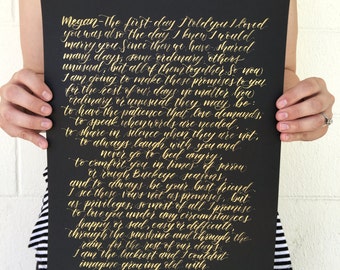 Megan-The first day I told you I loved
you was also the day I knew I would
marry you. Since then we have shared
many days, some ordinary, others
unusual, but all of them together. So now
I am going to make these promises to you
for the rest of our days no matter how
ordinary or unusual they may be:
to have the patience that love demands,
to speak when words are needed,
to share in silence when they are not,
to always laugh with you and
never go to bed angry,
to comfort you in times of sorrow
or rough Buckeye seasons,
and to always be your best friend.
I see these vows not as promises, but
as privileges, so most of all I promise
to love you under any circumstances
happy or sad, easy or difficult,
through the sunshine and through the
rain, for the rest of our days.
I am the luckiest and I couldn't
imagine growing old with